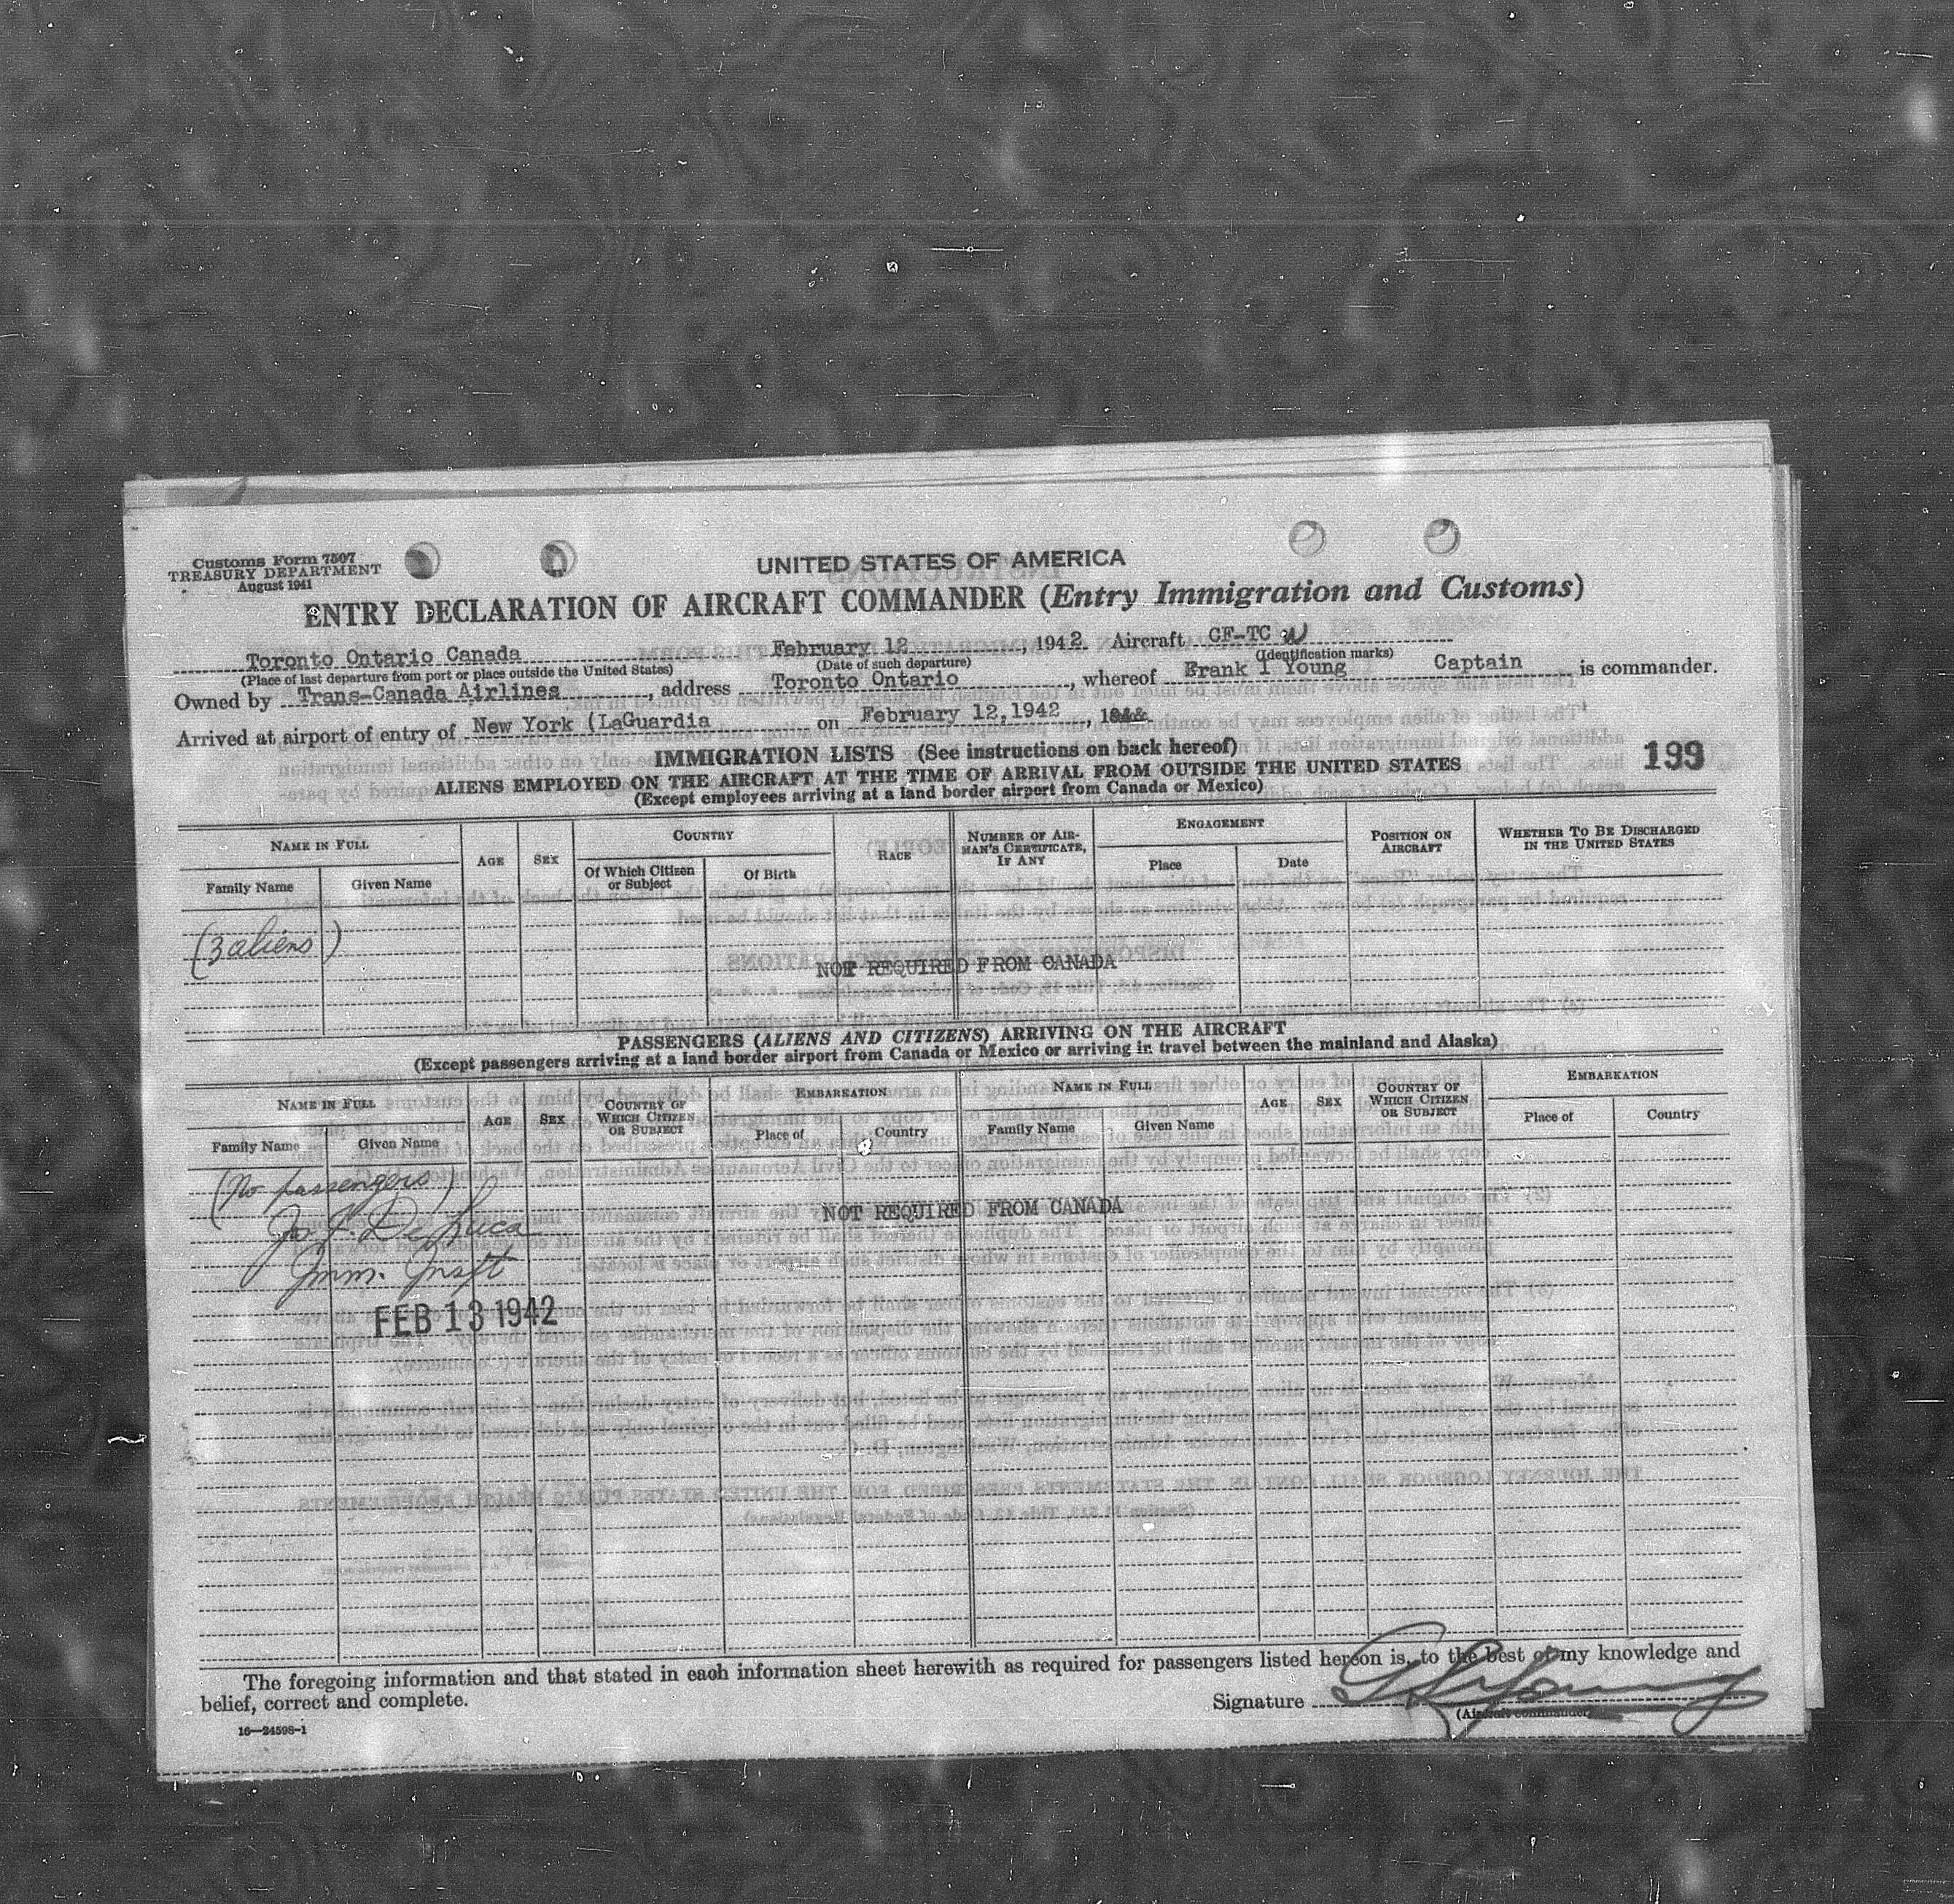 Customs Form 7507
TREASURY DEPARTMENT
August 1941
UNITED STATES OF AMERICA
ENTRY DECLARATION OF AIRCRAFT COMMANDER (Entry Immigration and Customs)
Toronto Ontario Canada February 12, 1942. Aircraft CF-TC W
(Place of last departure from port or place outside the United States) (Date of such departure) (Identification marks)
Owned by Trans-Canada Airlines, address Toronto Ontario, whereof Frank I Young Captain is commander.
Arrived at airport of entry of New York (LaGuardia on February 12,1942, 194
IMMIGRATION LISTS (See instructions on back hereof)
199
ALIENS EMPLOYED ON THE AIRCRAFT AT THE TIME OF ARRIVAL FROM OUTSIDE THE UNITED STATES
(Except employees arriving at a land border airport from Canada or Mexico)
NAME IN FULL AGE SEX COUNTRY RACE NUMBER OF AIR-MAN'S CERTIFICATE, IF ANY ENGAGEMENT POSITION ON AIRCRAFT WHETHER TO BE DISCHARGED IN THE UNITED STATES
Family Name Given Name Of Which Citizen or Subject Of Birth Place Date
(3 aliens)
NOT REQUIRED FROM CANADA
PASSENGERS (ALIENS AND CITIZENS) ARRIVING ON THE AIRCRAFT
(Except passengers arriving at a land border airport from Canada or Mexico or arriving in travel between the mainland and Alaska)
NAME IN FULL AGE SEX COUNTRY OF WHICH CITIZEN OR SUBJECT EMBARKATION NAME IN FULL AGE SEX COUNTRY OF WHICH CITIZEN OR SUBJECT EMBARKATION
Family Name Given Name Place of Country Family Name Given Name Place of Country
(No passengers)
NOT REQUIRED FROM CANADA
Jas. F. DeLuca
Imm. Inspt
FEB 13 1942
The foregoing information and that stated in each information sheet herewith as required for passengers listed hereon is, to the best of my knowledge and
belief, correct and complete.
Signature
(Aircraft commander)
16—24598-1